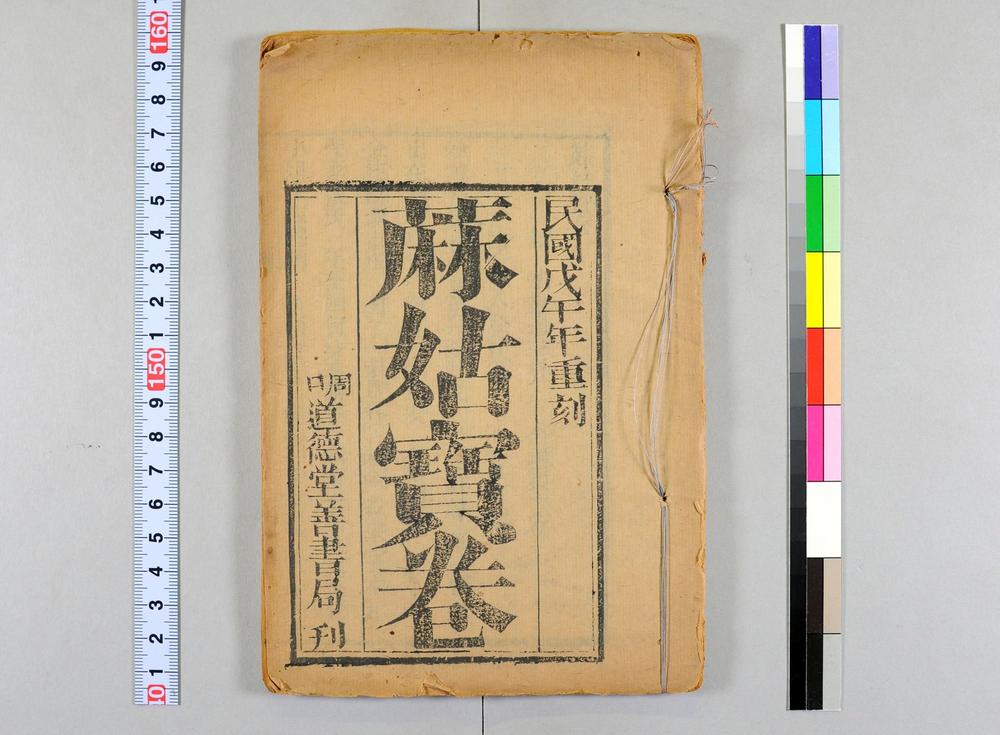 民國戊午年重刻
蔴姑寶卷
周口道德堂善書局刊
160
9
8
7
6
5
4
3
2
1
150
9
8
7
6
5
4
3
2
1